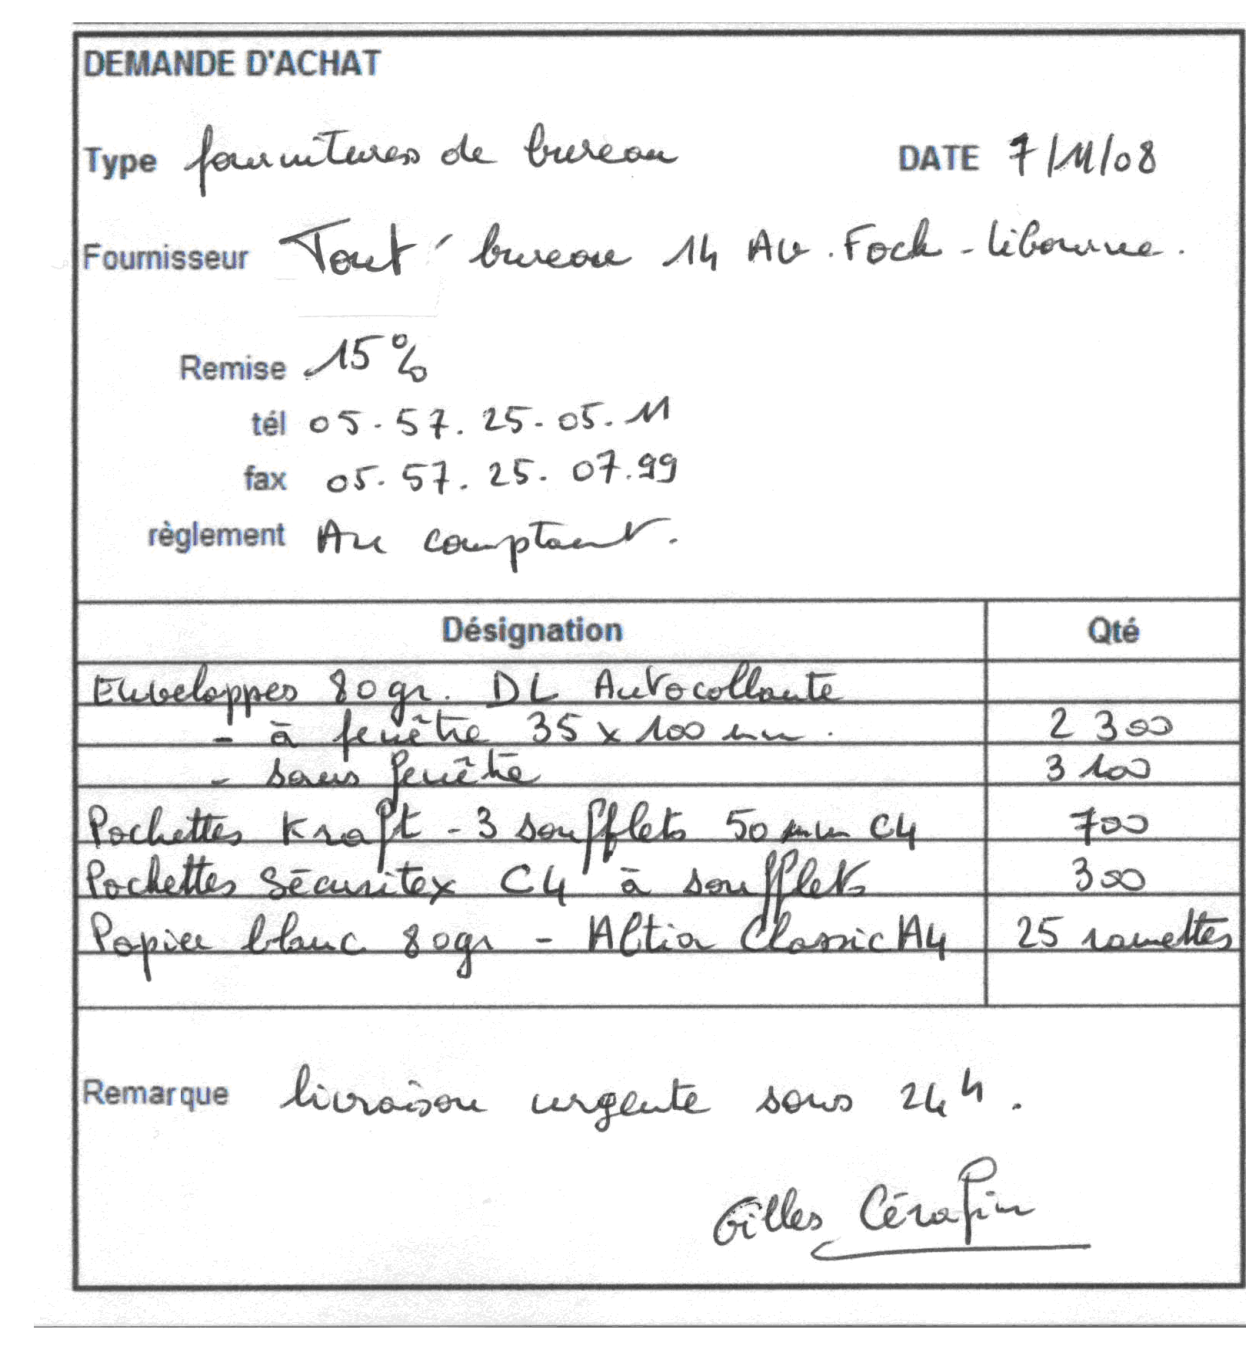 DEMANDE D'ACHAT
Type fournitures de bureau DATE 7/11/08
Fournisseur Tout' bureau 14 Av. Foch - Libourne.
Remise 15%
tél 05.57.25.05.11
fax 05.57.25.07.99
règlement Au comptant.
Désignation Qté
Enveloppes 80gr. DL Autocollante
- à fenêtre 35 x 100 mm. 2 300
- sans fenêtre 3 100
Pochettes Kraft - 3 soufflets 50 mm C4 700
Pochettes Sécuritex C4 à soufflets 300
Papier blanc 80gr - Altia Classic A4 25 ramettes
Remarque livraison urgente sous 24h.
Gilles Cérafin